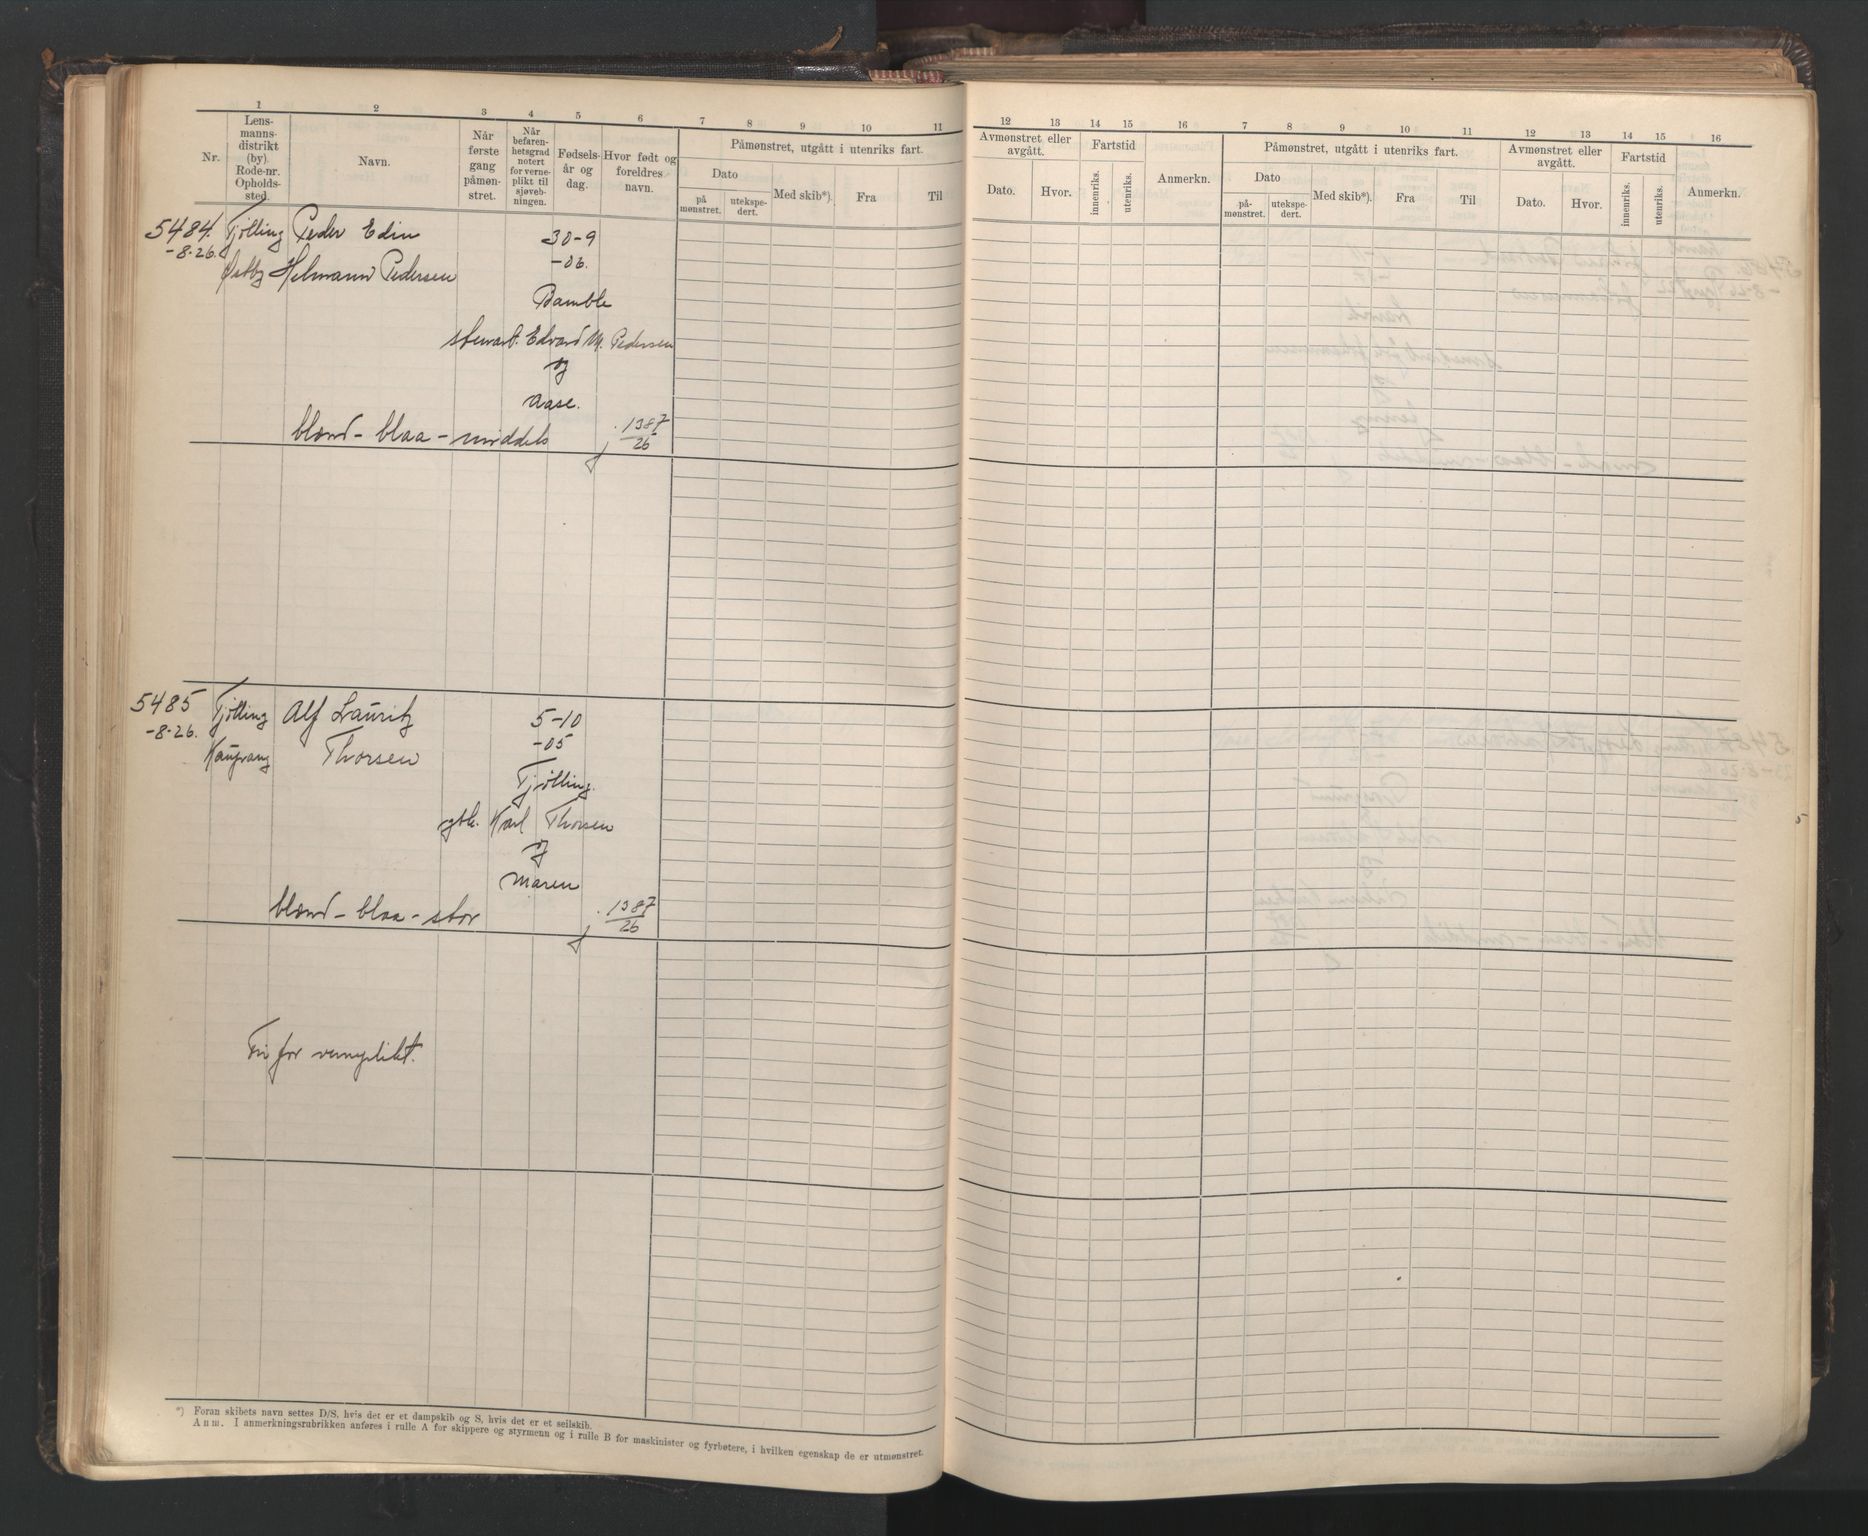 1 2 3 4 5 6 7 8 9 10 11
Nr.
Lens-
manns-
distrikt
(by).
Rode-nr.
Opholds-
sted.
Navn.
Når
første
gang
påmøn-
stret.
Når
befaren-
hetsgrad
notert
for verne-
plikt til
sjøveb-
ningen.
Fødsels-
år og
dag.
Hvor født og
foreldres
navn.
Påmønstret, utgått i utenriks fart.
Dato
på
mønstret.
utekspe-
dert.
Med skib*).
Fra
Til
5484. Tjølling Peder Edin 30-9
-8-26. Østby Helmann Pedersen -06.
Bamble
stewart. Edvard M. Pedersen
og
Aase.
blond - blaa - middels j. 1387/26
5485 Tjølling Alf Lauritz 5-10
-8-26. Kaupang Thorsen -05
Tjølling.
gbr. Karl Thorsen
og
Maren
blond - blaa - stor j. 1387/26
Fri for verneplikt.
*) Foran skibets navn settes D/S, hvis det er et dampskib og S, hvis det er et seilskib.
Anm. I anmerkningsrubrikken anføres i rulle A for skippere og styrmenn og i rulle B for maskinister og fyrbøtere, i hvilken egenskap de er utmønstret.
12 13 14 15 16 7 8 9 10 11 12 13 14 15 16
Avmønstret eller
avgått.
Dato.
Hvor.
Fartstid
innenriks.
utenriks.
Anmerkn.
Påmønstret, utgått i utenriks fart.
Dato
på-
mønstret.
utekspe-
dert.
Med skib*).
Fra
Til
Avmønstret eller
avgått.
Dato.
Hvor.
Fartstid
innenriks.
utenriks.
Anmerkn.